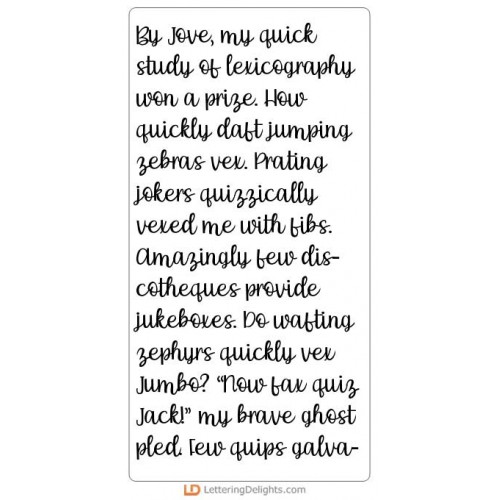 By Jove, my quick
study of lexicography
won a prize. How
quickly daft jumping
zebras vex. Prating
jokers quizzically
vexed me with fibs.
Amazingly few dis-
cotheques provide
jukeboxes. Do wafting
zephyrs quickly vex
Jumbo? "Now fax quiz
Jack!" my brave ghost
pled. Few quips galva-
LD LetteringDelights.com